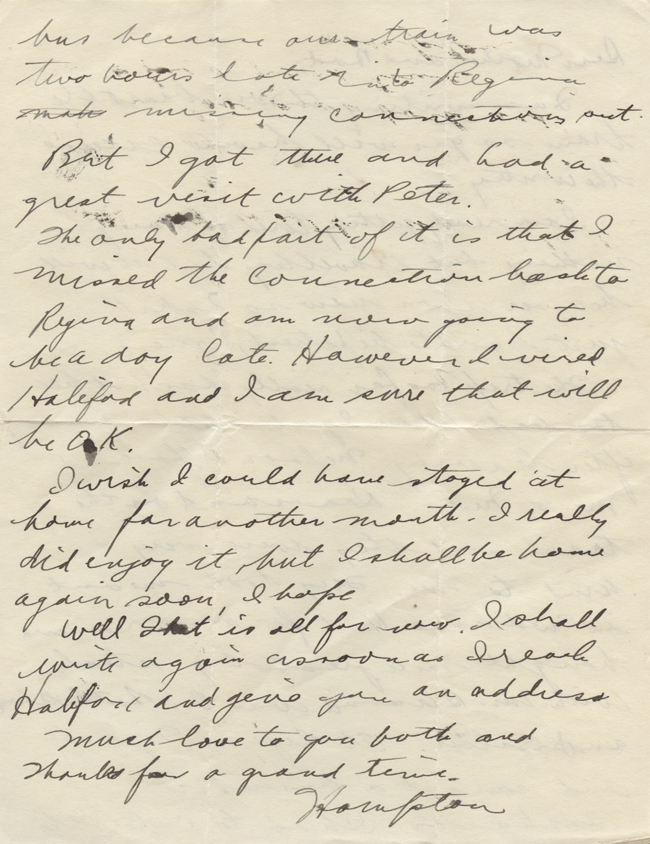 bus because our train was
two hours late into Regina
missing connections out.
But I got there and had a
great visit with Peter.
The only bad part of it is that I
missed the connection back to
Regina and am now going to
be a day late. However I wired
Halifax and I am sure that will
be O.K.
I wish I could have stayed at
home for another month. I really
did enjoy it, but I shall be home
again soon, I hope
Well that is all for now. I shall
write again as soon as I reach
Halifax and give you an address
Much love to you both and
thanks for a grand time.
Hampton